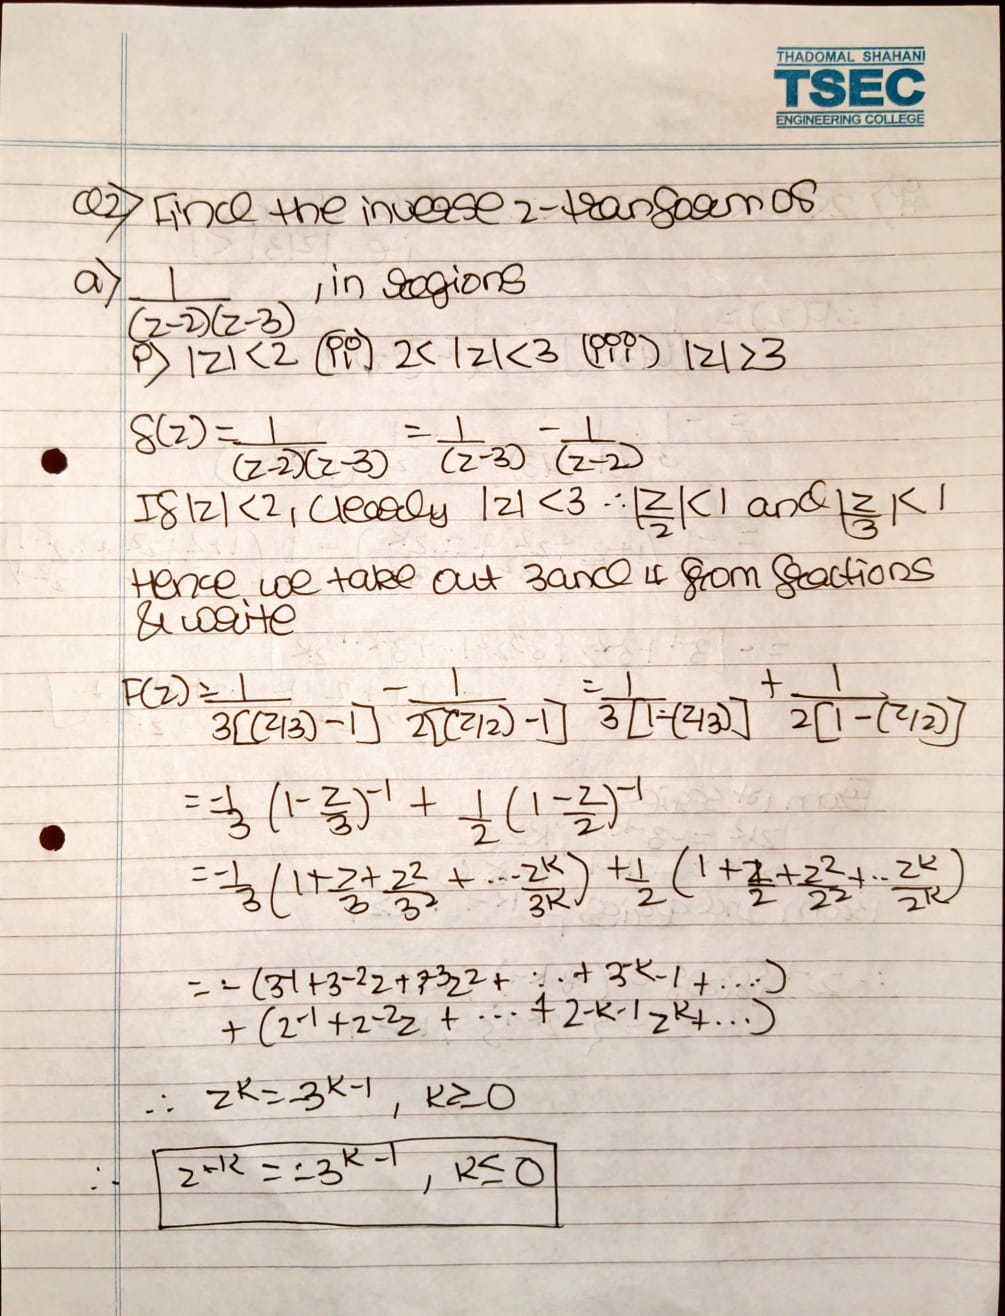 THADOMAL SHAHANI
TSEC
ENGINEERING COLLEGE
Q2) Find the inverse z-transform of
a) 1/((z-2)(z-3)) , in regions
i) |z|<2 (ii) 2< |z|<3 (iii) |z|>3
f(z) = 1/((z-2)(z-3)) = 1/(z-3) - 1/(z-2)
If |z|<2, clearly |z|<3 ∴ |z/2|<1 and |z/3|<1
Hence we take out 3 and 4 from fractions
& write
F(z) = 1/(3[(z/3)-1]) - 1/(2[(z/2)-1]) = 1/(3[1-(z/3)]) + 1/(2[1-(z/2)])
= -1/3 (1-z/3)^-1 + 1/2 (1-z/2)^-1
= -1/3 (1+z/3+z^2/3^2 + ... z^k/3^k) + 1/2 (1+z/2+z^2/2^2+.. z^k/2^k)
= - (3^-1+3^-2z+3^-3z^2+ ... + 3^-k-1 + ....)
+ (2^-1+2^-2z + ... + 2^-k-1 z^k+...)
∴ z^k = -3^k-1 , k≥0
∴ z^-k = -3^k-1 , k≤0